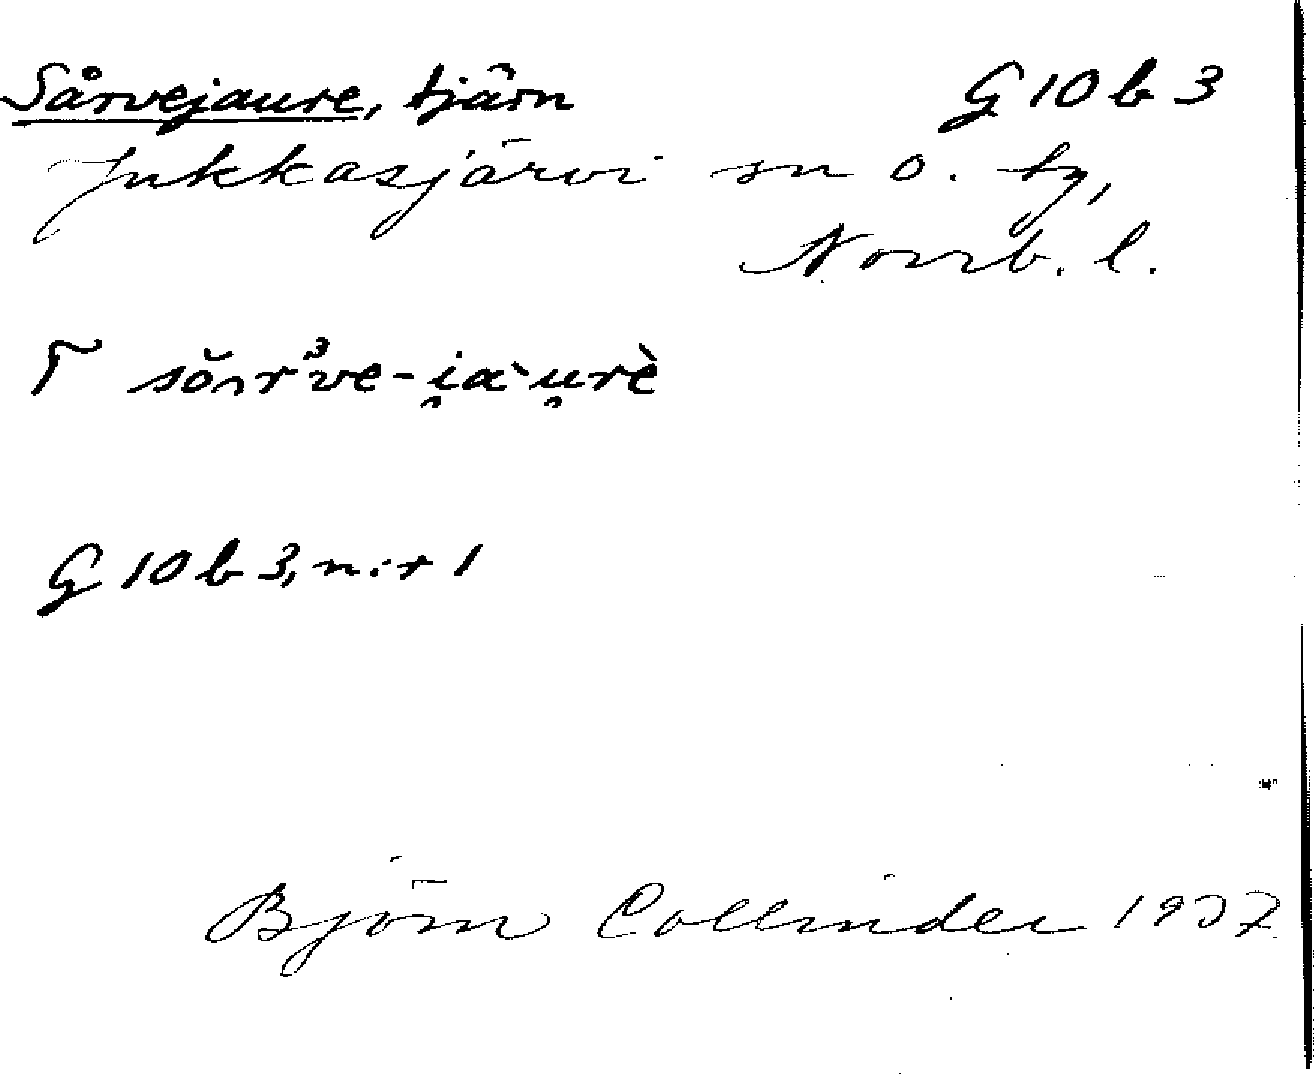 Sårvejaure, tjärn G 10 b 3
Jukkasjärvi sn o. tg,
Norrb. l.
G 10 b 3, n:r 1
Björn Collinder 1937